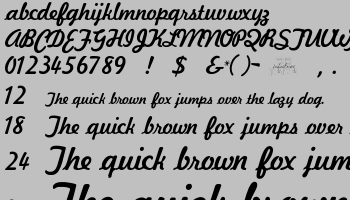 abcdefghijklmnopqrstuvwxyz
ABCDEFGHIJKLMNOPQRSTUVW
0123456789 ! $ &*()- , .
12 The quick brown fox jumps over the lazy dog.
18 The quick brown fox jumps over
24 The quick brown fox jum
The quick brown